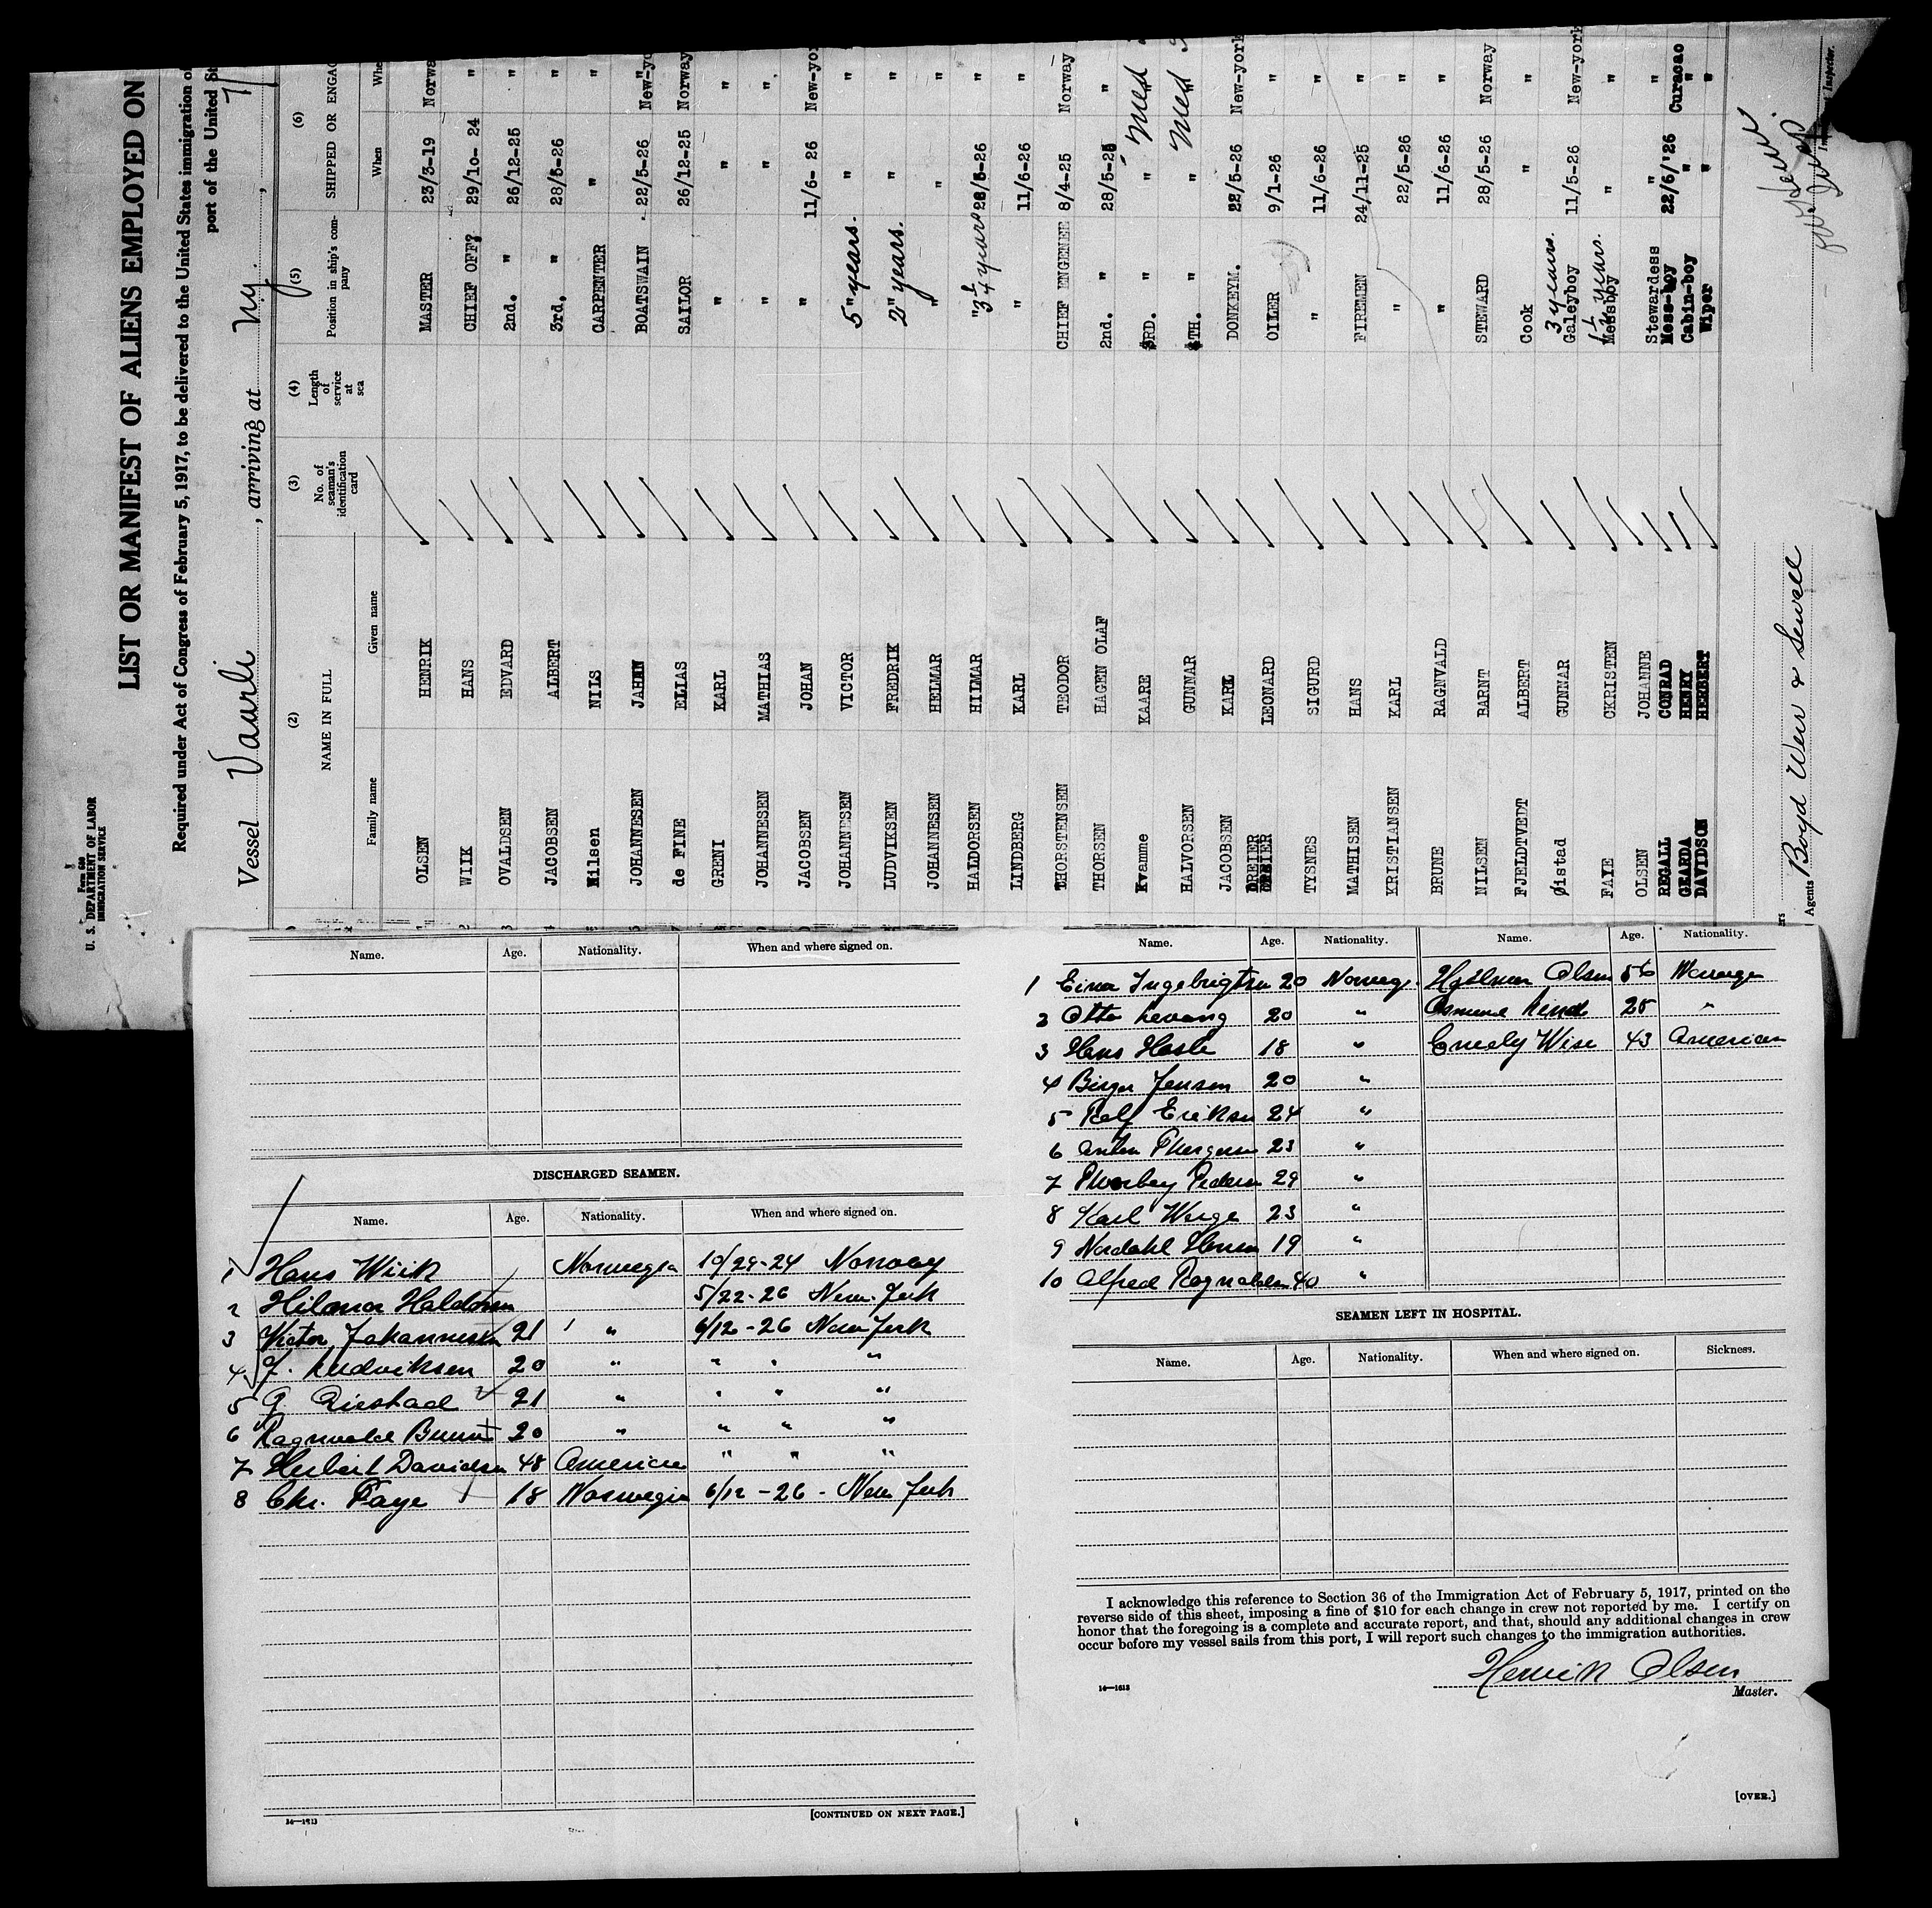 Form 680
U. S. DEPARTMENT OF LABOR
IMMIGRATION SERVICE
LIST OR MANIFEST OF ALIENS EMPLOYED ON
Required under Act of Congress of February 5, 1917, to be delivered to the United States immigration
port of the United
Vessel Vaarli, arriving at N.Y.
(2) (3) (4) (5) (6)
NAME IN FULL No. of seaman's identification card Length of service at sea Position in ship's company SHIPPED OR ENGAG
Family name Given name When Whe
OLSEN HENRIK MASTER 23/3-19 Norwa
WIIK HANS CHIEF OFF? 29/10-24 "
OVALDSEN EDVARD 2nd. " 26/12-25 "
JACOBSEN ALBERT 3rd. " 28/5-26 "
Nilsen NILS CARPENTER " "
JOHANNESEN JAHNN BOATSWAIN 22/5-26 New-yo
de FINE ELIAS SAILOR 26/12-25 Norway
GRENI KARL " " "
JOHANNESEN MATHIAS " " "
JACOBSEN JOHAN " 11/6-26 New-yor
JOHANNESEN VICTOR 5 " years. " "
LUDVIKSEN FREDRIK 2 " years. " "
JOHANNESEN HELMAR " " "
HALDORSEN HILMAR " 3 1/4 years 22/5-26 "
LINDBERG KARL " 11/6-26 "
THORSTENSEN TEODOR CHIEF ENGENEE 8/4-25 Norway
THORSEN HAGEN OLAF 2nd. " 28/5-25 "
Kvamme KAARE 3RD. " " "
HALVORSEN GUNNAR 4TH. " " "
JACOBSEN KARL DONKEYM. 22/5-26 New-york
DREIER LEONARD OILER 9/1-26 "
TYSNES SIGURD " 11/6-26 "
MATHISEN HANS FIREMEN 24/11-25 "
KRISTIANSEN KARL " 22/5-26 "
BRUNE RAGNVALD " 11/6-26 "
NILSEN BARNT STEWARD 28/5-26 Norway
FJELDTVEDT ALBERT Cook " "
Øistad GUNNAR 3 years. Galeyboy 11/5-26 New-york
FAYE CKRISTEN 1 1/2 years. Messboy " "
OLSEN JOHANNE Stewardess " "
REGALL CONRAD Mess-boy 22/6/'26 Curacao
GEARDA HENRY Cabin-boy " "
DAVIDSON HERBERT Wiper " "
Agents Boyd Weir & Sewell
Inspector.
Name. Age. Nationality. When and where signed on.
DISCHARGED SEAMEN.
Name. Age. Nationality. When and where signed on.
1 Hans Wiik Norwegia 10/29-24 Norway
2 Hilmar Haldorsen 5/22-26 New York
3 Victor Johannesen 21 " 6/12-26 New York
4 F. Ludviksen 20 " " " "
5 G. Oiestad 21 " " " "
6 Ragnvald Brune 20 " " " "
7 Herbert Davidsen 48 American " " "
8 Chr. Faye 18 Norwegia 6/12-26 - New York
14—1613
[CONTINUED ON NEXT PAGE.]
Name. Age. Nationality. Name. Age. Nationality.
1 Einar Ingebrigtsen 20 Norweg. Hjalmar Olsen 56 Norwege
2 Otto Levang 20 " 25 "
3 Hans Hasle 18 " Emely Wise 43 American
4 Birger Jensen 20 "
5 Rolf Eriksen 24 "
6 Anton 23 "
7 Pedersen 29 "
8 Karl Werge 23 "
9 Nordahl Hansen 19 "
10 Alfred Ragnvaldsen 40 "
SEAMEN LEFT IN HOSPITAL.
Name. Age. Nationality. When and where signed on. Sickness.
I acknowledge this reference to Section 36 of the Immigration Act of February 5, 1917, printed on the
reverse side of this sheet, imposing a fine of $10 for each change in crew not reported by me. I certify on
honor that the foregoing is a complete and accurate report, and that, should any additional changes in crew
occur before my vessel sails from this port, I will report such changes to the immigration authorities.
Henrik Olsen
Master.
14—1613
[OVER.]